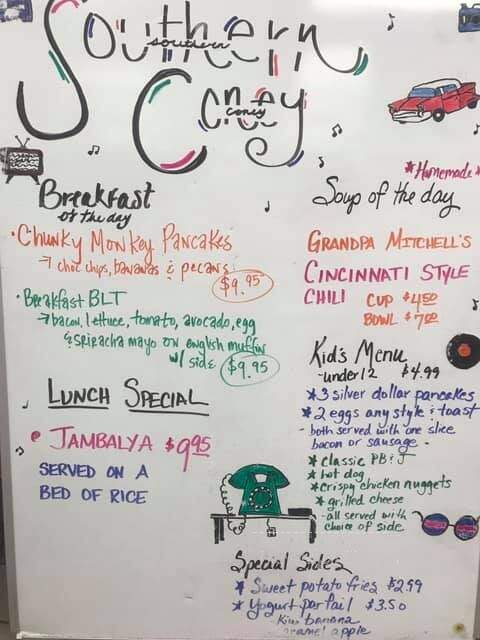 Southern
southern
Coney
coney
Breakfast
of the day
• Chunky Monkey Pancakes
→ choc chips, bananas & pecans
$9.95
• Breakfast BLT
→ bacon, lettuce, tomato, avocado, egg
& sriracha mayo on english muffin
w/ side $9.95
Lunch Special
• Jambalya $9.95
Served on a
bed of rice
*Homemade*
Soup of the day
Grandpa Mitchell's
Cincinnati Style
Chili Cup $4.50
Bowl $7.00
Kid's Menu
-under 12 $4.99
*3 silver dollar pancakes
*2 eggs any style & toast
- both served with one slice
bacon or sausage -
*classic PB & J
*hot dog
*crispy chicken nuggets
*grilled cheese
-all served with
choice of side
Special Sides
* Sweet potato fries $2.99
* Yogurt parfait $3.50
Kiwi banana
caramel apple